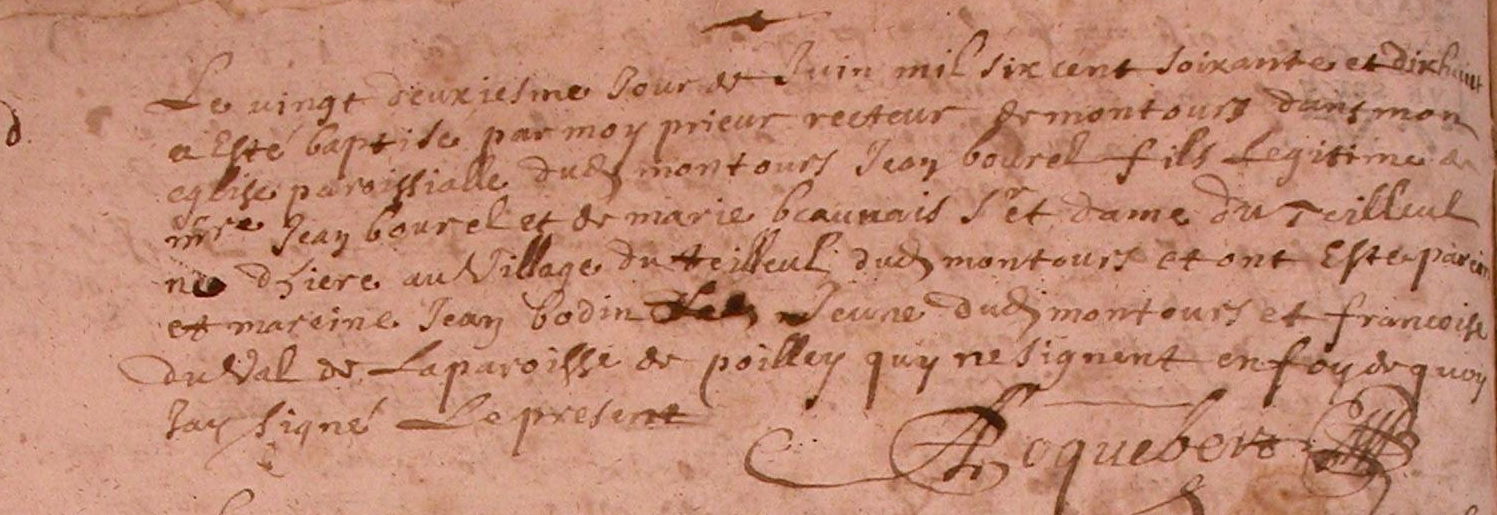 Le vingt deuxiesme Jour de Juin mil six cent soixante et dixhuict
a Esté baptise par moy prieur recteur de montours dans mon
eglise paroissialle dud montours Jean bourel fils Legitime de
mre Jean bourel et de marie beauvais Sr et dame du Teilleul
né dhiere au Village du teilleul dud montours et ont Este parein
et mareine Jean bodin Jeune dud montours et francoise
du Val de La paroisse de poilley quy ne signent en foy de quoy
Jay signé Le present
Roquebert